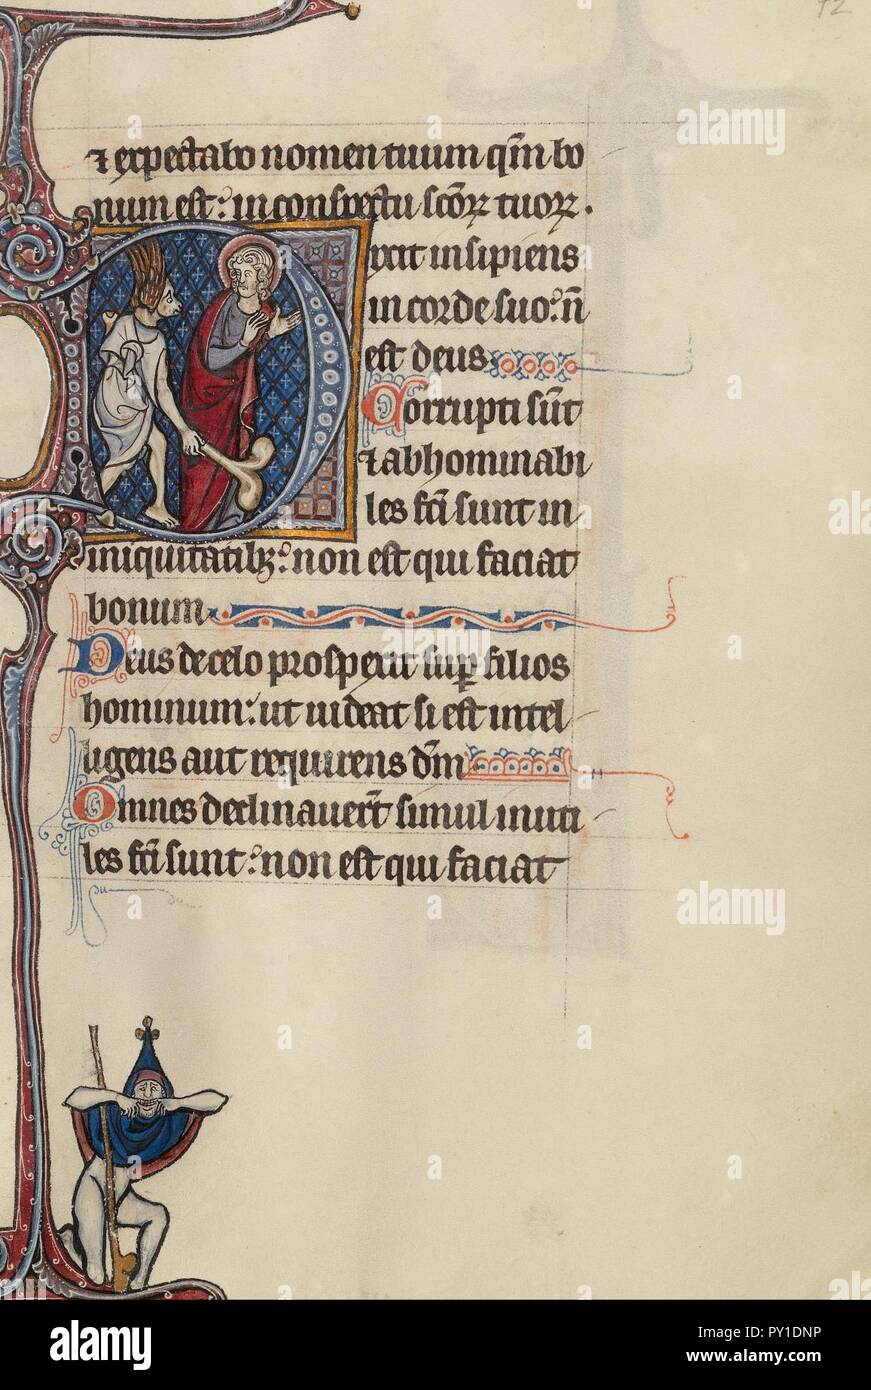 12
⁊ expectabo nomen tuum qm̄ bo
num est: in conspectu scōꝝ tuoꝝ.
Dixit insipiens
in corde suo: nō
est deus
Corrupti sūt
⁊ abhominabi
les fc̄i sunt in
iniquitatibꝫ: non est qui faciat
bonum
Deus de celo prospexit suꝑ filios
hominum: ut uideat si est intel
ligens aut requirens dm̄
Omnes declinauer̄t simul inuti
les fc̄i sunt: non est qui faciat
alamy
a
alamy stock photo
PY1DNP
www.alamy.com